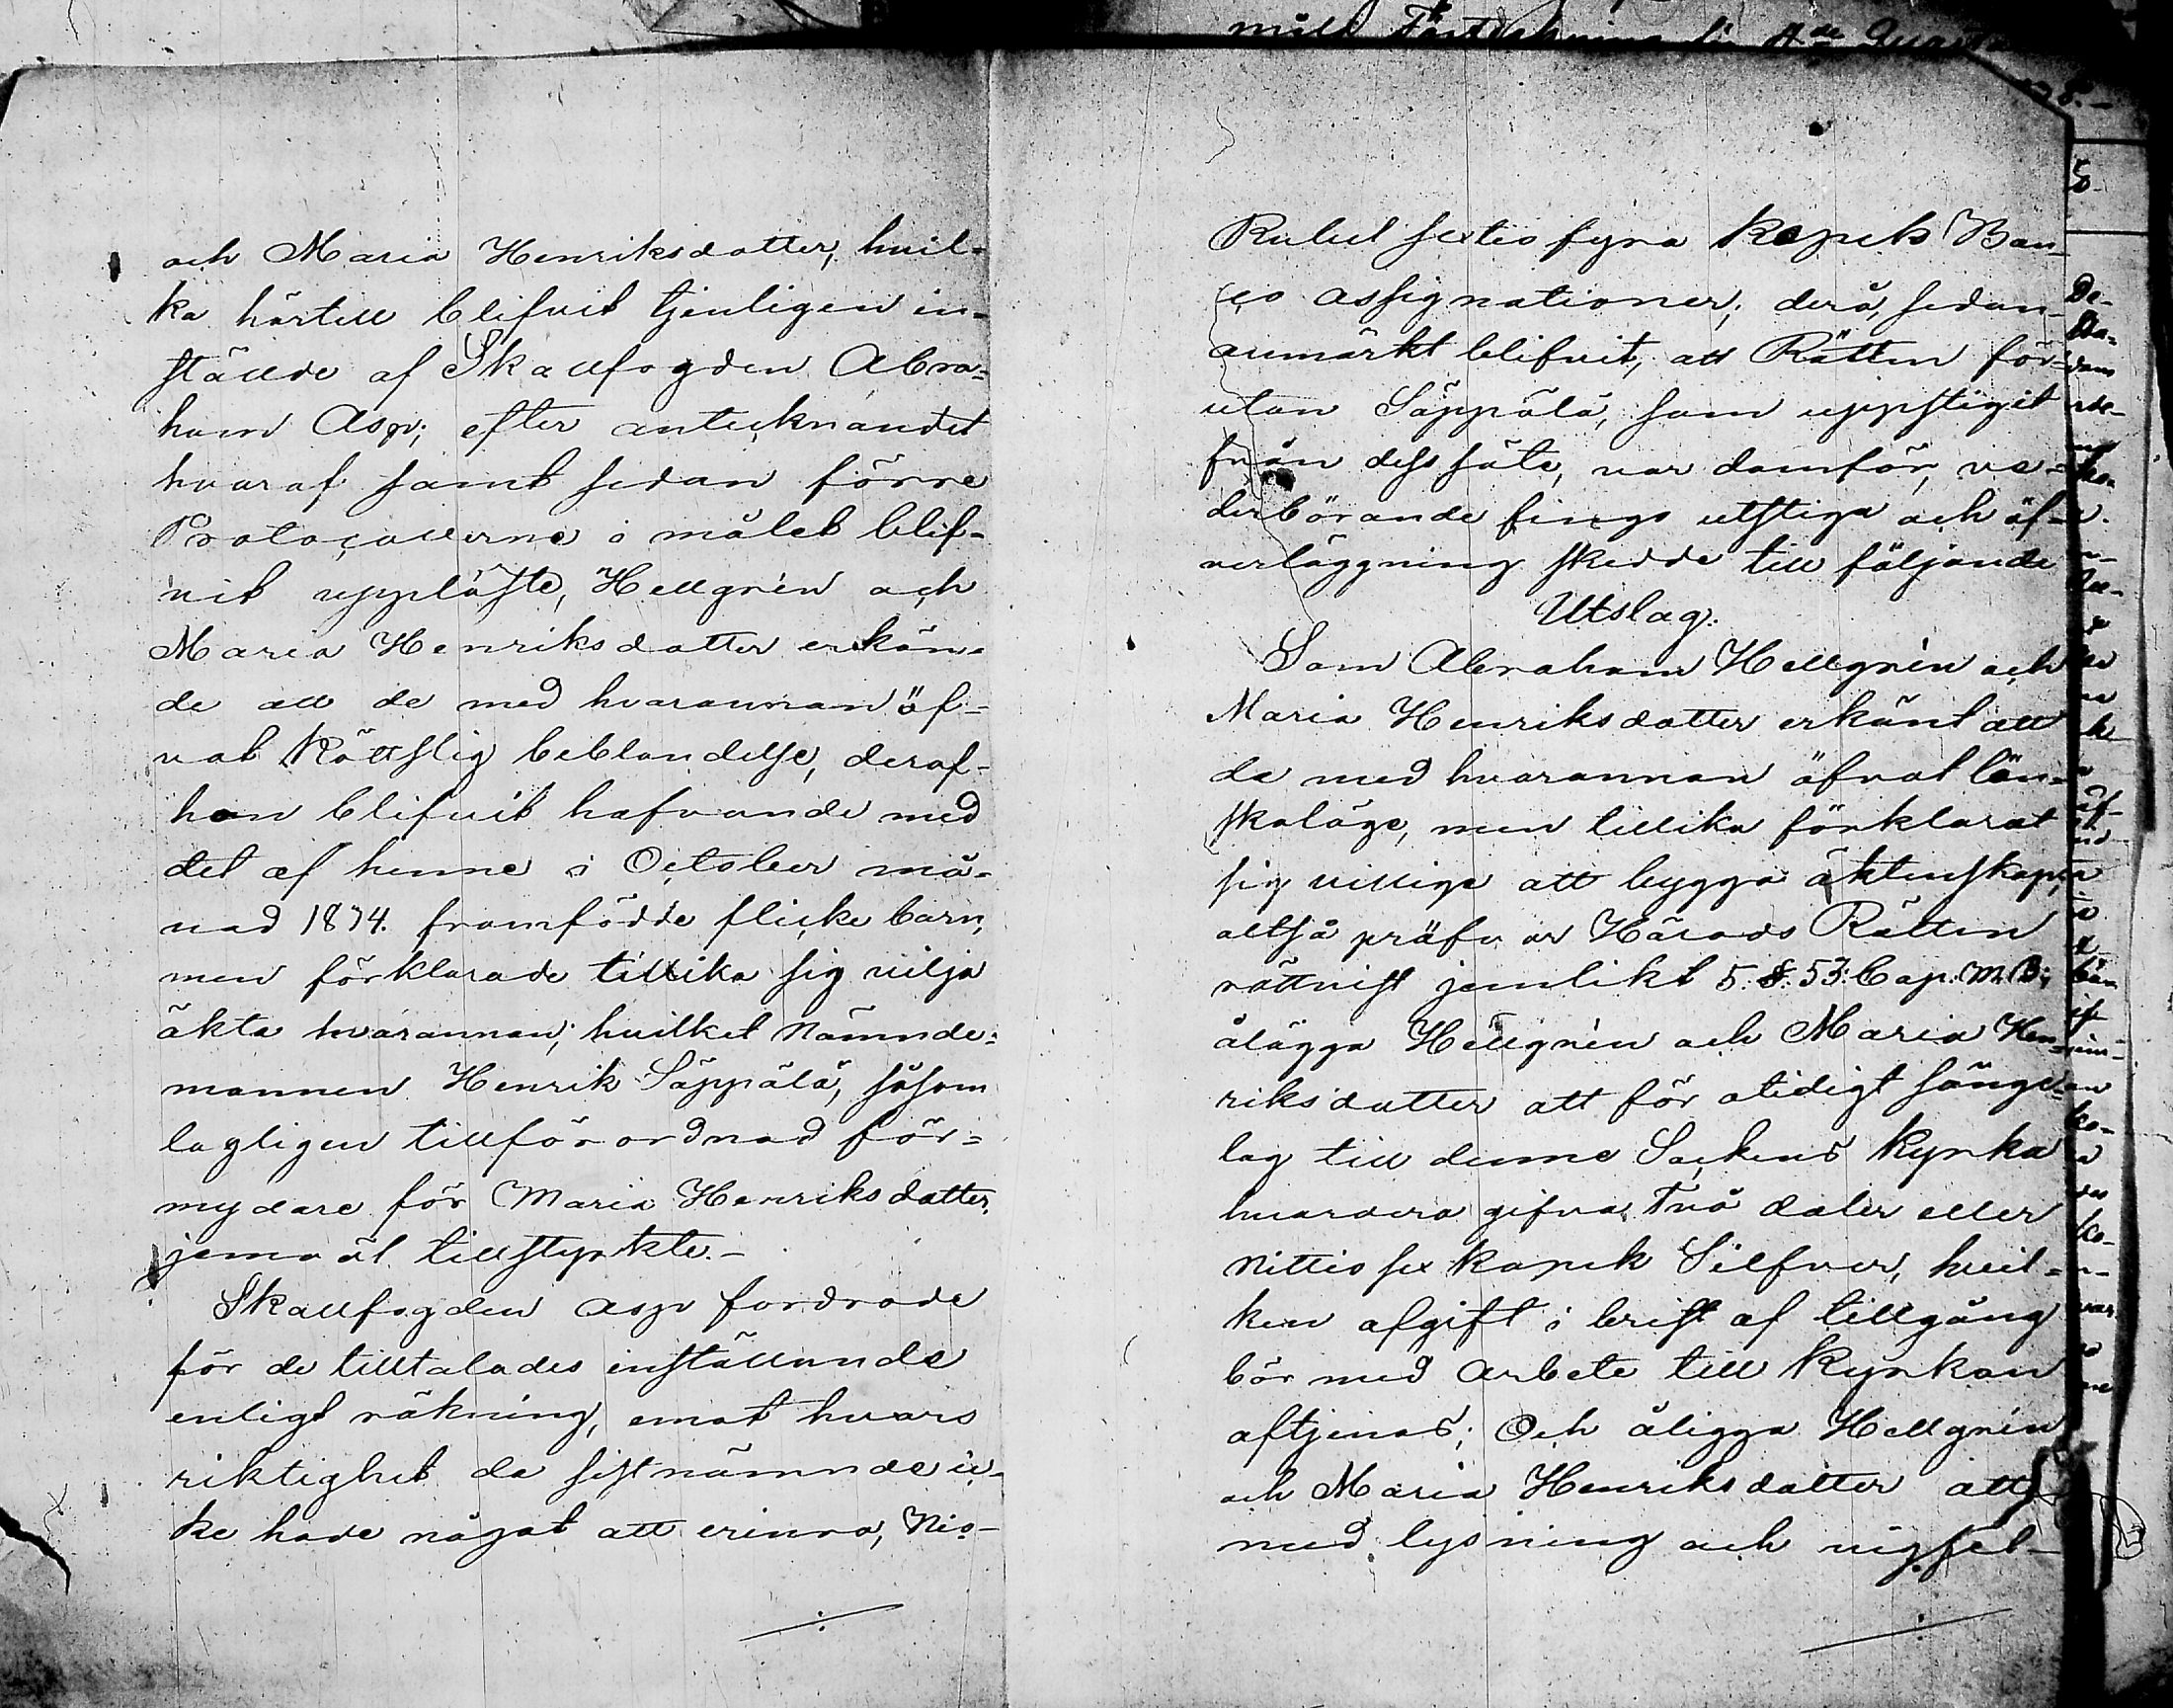 och Maria Henriksdotter, hvil-
ka härtill blifvit tjenligen in-
stälde af Skallfogden Abra-
ham Asp; efter antecknandet
hvaraf samt sedan förre
Protocollerne i målet blif-
vit uppläste, Hellgrén och
Maria Henriksdotter erkän-
de att de med hvarannan öf-
vat köttslig beblandelse, deraf
hon blifvit hafvande med
det af henne i October må-
nad 1834. framfödde flicke barn,
men förklarade tillika sig vilja
äkta hvarannan; hvilket Nämnde-
mannen Henrik Säppälä, såsom
lagligen tillförordnad för-
mydare för Maria Henriksdotter,
jemväl tillstyrkte.-
Skallfogden Asp fordrade
för de tilltalades inställande
enligt räkning, emot hvars
riktighet de sistnämnde ic-
ke hade något att erinra, Nio-
Rubel sextio fyra Kopek Ban-
co assignationer; derå, sedan
anmärkt blifvit, att Rätten för-
utan Säppälä, som uppstigit
från dess säte, var domför, ve-
derbörande fingo utstiga och öf-
verläggning skedde till följande
Utslag.
Som Abraham Hellgrén och
Maria Henriksdotter erkänt att
de med hvarannan öfvat län-
skaläge, men tillika förklarat
sig villige att bygga äktenskap,
altså pröfvar Härads Rätten
rättvist jemlikt 5. §. 53. Cap. M. B;
ålägga Hellgrén och Maria Hen-
riksdotter att för otidigt sänge-
lag till denne Sockens Kyrka
hvardera gifva Två daler eller
Nittio sex kopek Silfver, hvil-
ken afgift i brist af tillgång
bör med arbete till Kyrkan
aftjenas; Och åligga Hellgrén
och Maria Henriksdotter att
med lysning och vigsel